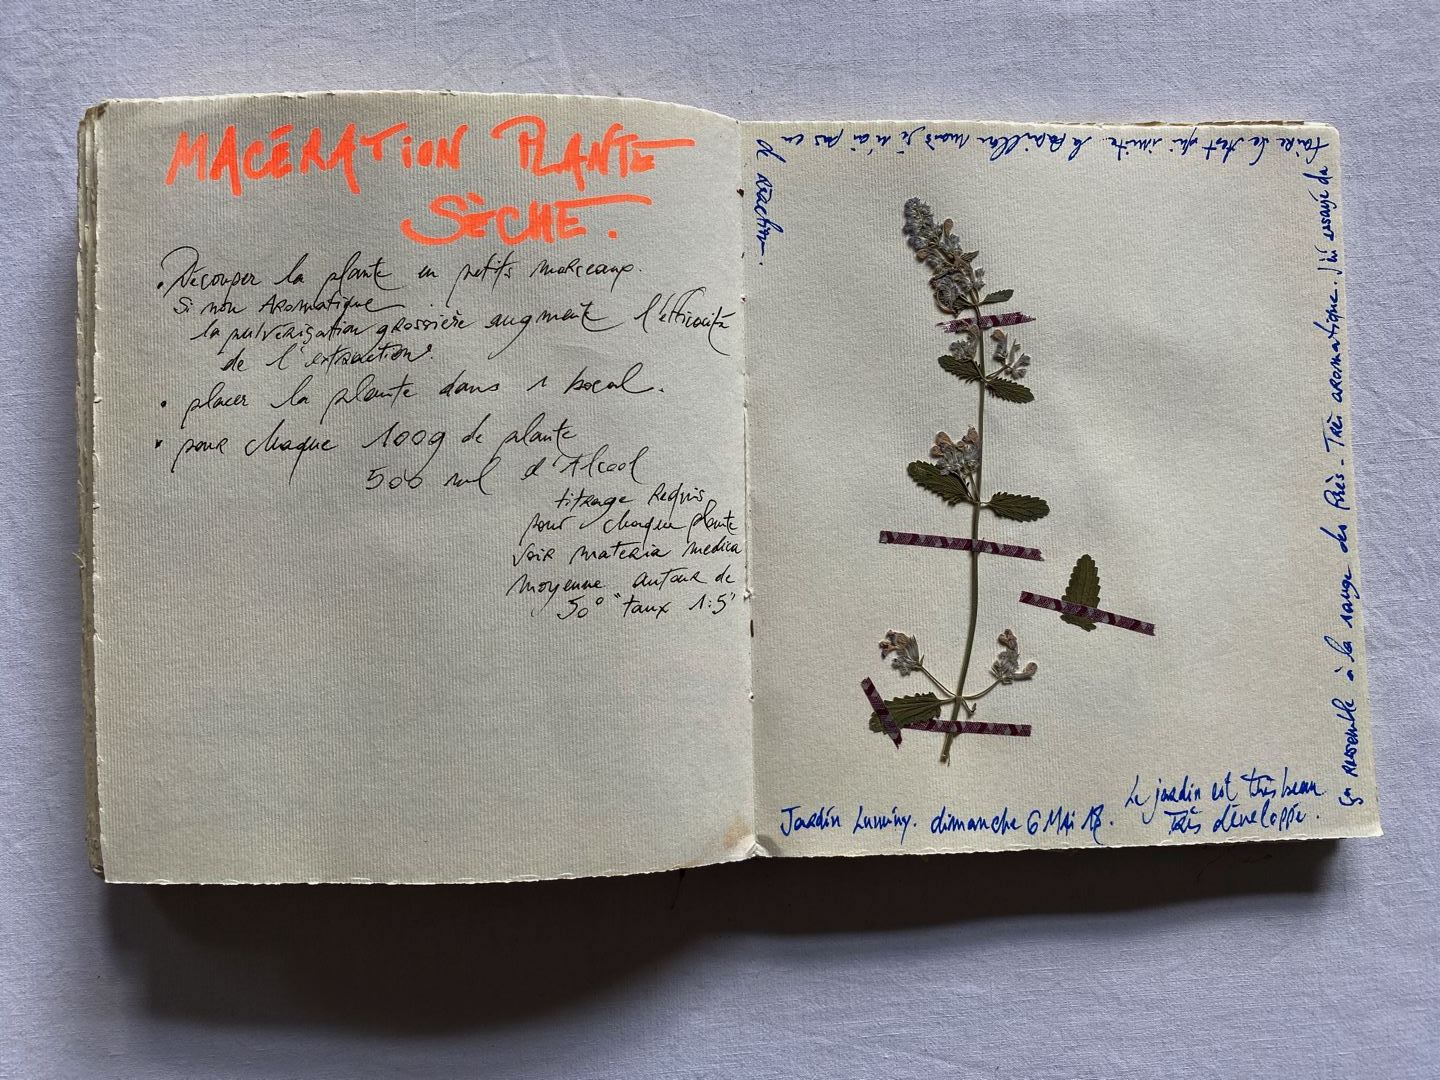 MACÉRATION PLANTE
SÈCHE.
• Découper la plante en petits morceaux.
Si non Aromatique
la pulvérisation grossière augmente l'efficacité
de l'extraction.
• placer la plante dans 1 bocal.
• pour chaque 100g de plante
500 ml d'Alcool
titrage Requis
pour chaque plante
voir materia medica
moyenne autour de
50° "taux 1:5"
Jardin Luminy. dimanche 6 MAi 18.
Le jardin est très beau.
Très développé.
ça ressemble à la sauge des Prés - Très aromatique. J'ai essayé de
faire le test qui imite le papillon mais je n'ai pas eu
d réaction.